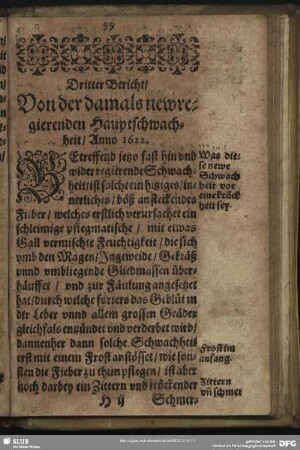 99
Dritter Bericht/
Von der damals newre-
gierenden Hauptschwach-
heit/ Anno 1622.
BEtreffend jetzo fast hin vnd
wider regierende Schwach-
heit/ ist solche ein hitziges/ in-
nerliches/ böß ansteckendes
Fieber/ welches erstlich verursachet ein
schleimige pflegmatische/ mit etwas
Gall vermischte Feuchtigkeit/ die sich
vmb den Magen/ Ingeweide/ Gekröß
vnnd vmbliegende Gliedmassen über-
häuffet/ vnd zur Fäulung angesetzet
hat/ durch welche förters das Geblüt in
der Leber vnnd allem grossen Geäder
gleichfals enzündet vnd verderbet wird/
dannenher dann solche Schwachheit
erst mit einem Frost anstösset/ wie son-
sten die Fieber zu thun pflegen/ ist aber
noch darbey ein Zittern vnd drückender
H ij Schmer-
Was die-
se newe
Schwach
heit vor
eine kräck
heit sey.
Frost im
anfang.
Zittern
vñ schmer
SLUB